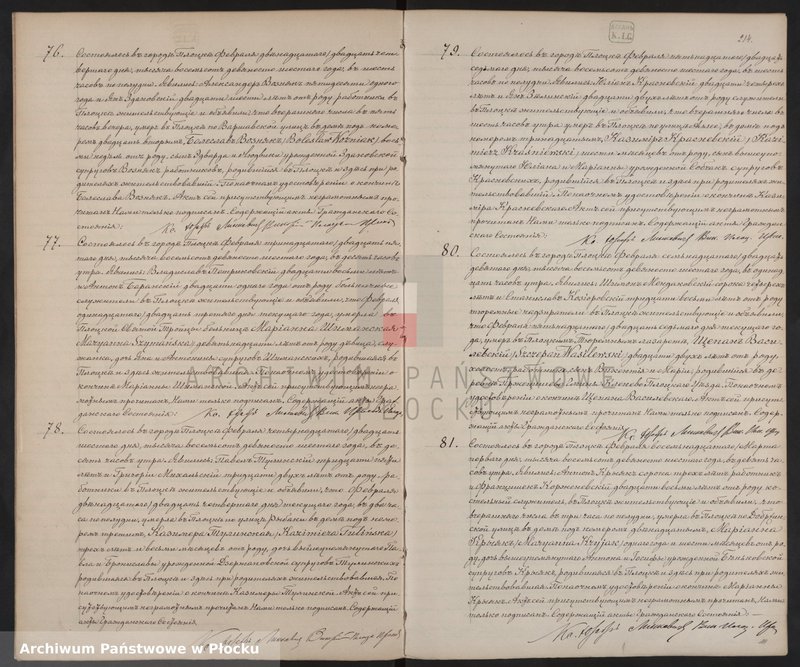 76. Состоялось въ городѣ Плоцкѣ Февраля двѣнадцатаго/двадцать чет-
вертаго дня, тысяча восемьсотъ девяносто шестаго года, въ шесть
часовъ по полудни. Явились: Александръ Вознякъ пятидесяти одного
года и Янъ Здановскій двадцати шести лѣтъ отъ роду работники въ
Плоцкѣ жительствующіе и объявили, что вчерашняго числа въ пять
часовъ вечера, умеръ въ Плоцкѣ по Варшавской улицѣ въ домѣ подъ номе-
ромъ двадцать вторымъ, Болеславъ Вознякъ /Bolesław Woźniak/
сынъ Эдварда и урожденной Здановской
супруговъ Вознякъ, работниковъ, родившійся въ Плоцкѣ и здѣсь при ро-
дителяхъ жительствовавшій. По наочномъ удостовѣреніи о кончинѣ
Болеслава Вознякъ. Актъ сей присутствующимъ неграмотнымъ про-
читанъ Нами только подписанъ. Содержащій акты Гражданскаго Со-
стоянія:
77. Состоялось въ городѣ Плоцкѣ Февраля тринадцатаго/двадцать пя-
таго дня, тысяча восемьсотъ девяносто шестаго года, въ десять часовъ
утра. Явились: Владиславъ Петриковскій двадцати восьми лѣтъ
и Антонъ Баранскій двадцати одного года отъ роду больничные
служители въ Плоцкѣ жительствующіе и объявили, что Февраля
одинадцатаго/двадцать третьяго дня текущаго года, умерла въ
Плоцкой Святой Троицы больницѣ Маріанна Шиманская
/Maryanna Szymańska/ девятнадцати лѣтъ отъ роду дѣвица, слу-
жанка, дочь Яна и Антонины супруговъ Шиманскихъ, родившаяся въ
Плоцкѣ и здѣсь жительствовавшая. По наочномъ удостовѣреніи о
кончинѣ Маріанны Шиманской. Актъ сей присутствующимъ негра-
мотнымъ прочитанъ Нами только подписанъ. Содержащій акты Граж-
данскаго Состоянія:
78. Состоялось въ городѣ Плоцкѣ Февраля четырнадцатаго/двадцать
шестаго дня, тысяча восемьсотъ девяносто шестаго года, въ де-
сять часовъ утра. Явились: Павелъ Тулинскій тридцати
лѣтъ и Григорій Михальскій тридцати двухъ лѣтъ отъ роду, ра-
ботники въ Плоцкѣ жительствующіе и объявили, что Февраля
двѣнадцатаго/двадцать четвертаго дня текущаго года, въ два ча-
са по полудни, умерла въ Плоцкѣ по улицѣ Рыбаки въ домѣ подъ номе-
ромъ третьимъ, Казимера Тулинская, /Kazimiera Tulińska/
трехъ лѣтъ и восьми мѣсяцевъ отъ роду, дочь вышеупомянутаго Па-
вла и Брониславы урожденной супруговъ Тулинскихъ
родившаяся въ Плоцкѣ и здѣсь при родителяхъ жительствовавшая. По
наочномъ удостовѣреніи о кончинѣ Казимеры Тулинской. Актъ сей при-
сутствующимъ неграмотнымъ прочитанъ Нами только подписанъ. Содержащій
акты Гражданскаго Состоянія:
214.
79. Состоялось въ городѣ Плоцкѣ Февраля пятнадцатаго/двадцать
седьмаго дня, тысяча восемьсотъ девяносто шестаго года, въ шесть
часовъ по полудни. Явились: Юліанъ Красневскій двадцати четырехъ
лѣтъ и Янъ двадцати двухъ лѣтъ отъ роду служители
въ Плоцкѣ жительствующіе и объявили, что вчерашняго числа въ
шесть часовъ утра умеръ въ Плоцкѣ по улицѣ въ домѣ подъ
номеромъ тринадцатымъ, Казиміръ Красневскій /Kazi-
mierz Kraśniewski/, шести мѣсяцевъ отъ роду, сынъ вышеупо-
мянутаго Юліана и Маріанны урожденной супруговъ
Красневскихъ, родившійся въ Плоцкѣ и здѣсь при родителяхъ жи-
тельствовавшій. По наочномъ удостовѣреніи о кончинѣ Кази-
міра Красневскаго. Актъ сей присутствующимъ неграмотнымъ
прочитанъ Нами только подписанъ. Содержащій акты Граждан-
скаго Состоянія:
80. Состоялось въ городѣ Плоцкѣ Февраля семнадцатаго/двадцать
девятаго дня, тысяча восемьсотъ девяносто шестаго года, въ одинад-
цать часовъ утра. Явились: Шимонъ сорока четырехъ
лѣтъ и Станиславъ Козіоровскій тридцати восьми лѣтъ отъ роду
тюремные надзиратели въ Плоцкѣ жительствующіе и объявили,
что Февраля пятнадцатаго/двадцать седьмаго дня текущаго го-
да, умеръ въ Плоцкомъ Тюремномъ лазаретѣ, Щепанъ Васи-
левскій /Szczepan Wasilewski/, двадцати двухъ лѣтъ отъ роду,
холостъ, работникъ, сынъ и Маріи, родившійся въ де-
ревнѣ Плоцкаго Уѣзда. По наочномъ
удостовѣреніи о кончинѣ Щепана Василевскаго. Актъ сей присут-
ствующимъ неграмотнымъ прочитанъ Нами только подписанъ. Содер-
жащій акты Гражданскаго Состоянія:
81. Состоялось въ городѣ Плоцкѣ Февраля восемнадцатаго/Марта
перваго дня, тысяча восемьсотъ девяносто шестаго года, въ девять ча-
совъ утра. Явились: Антонъ Крыякъ сорока трехъ лѣтъ работникъ
и Францишекъ Корженевскій двадцати восьми лѣтъ отъ роду ко-
стельный служитель, въ Плоцкѣ жительствующіе и объявили, что
вчерашняго числа въ три часа по полудни, умерла въ Плоцкѣ по Добржин-
ской улицѣ въ домѣ подъ номеромъ двѣнадцатымъ, Маріанна
Крыякъ /Maryanna Kryjak/, одного года и шести мѣсяцевъ отъ ро-
ду, дочь вышеупомянутаго Антона и Іозефы урожденной Беньковской
супруговъ Крыякъ, родившаяся въ Плоцкѣ и здѣсь при родителяхъ жи-
тельствовавшая. По наочномъ удостовѣреніи о кончинѣ Маріанны
Крыякъ. Актъ сей присутствующимъ неграмотнымъ прочитанъ Нами
только подписанъ. Содержащій акты Гражданскаго Состоянія:
ARCHIWUM PAŃSTWOWE
W PŁOCKU
Archiwum Państwowe w Płocku